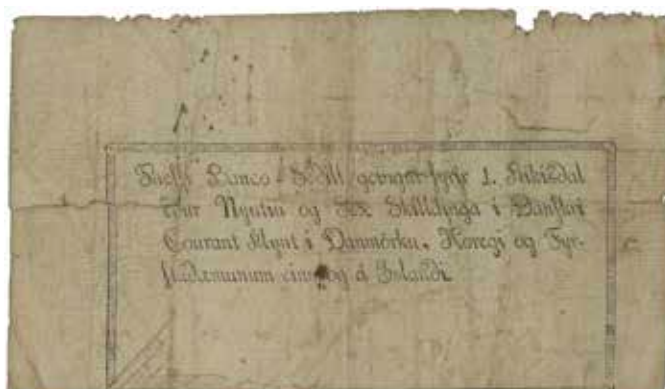 Þaessi Banco-Sedill gengur fyrir 1. Rikisdal
edur Nyutiu og Sex Skilldinga i Danskri
Courant Mynt i Danmörku, Noregi og Fyr-
stadæmunum einneg á Islandi